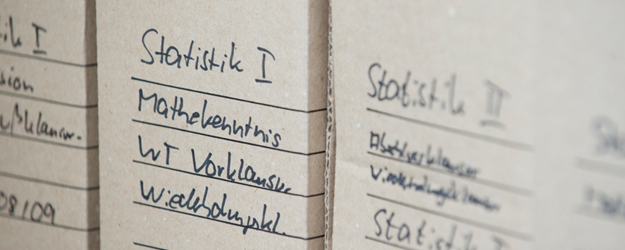 ik I
sion
08/09
Statistik I
Mathekenntnis
WT Vorklausur
Wiederholungskl.
Statistik II
Wiederholungsklausur
Statistik